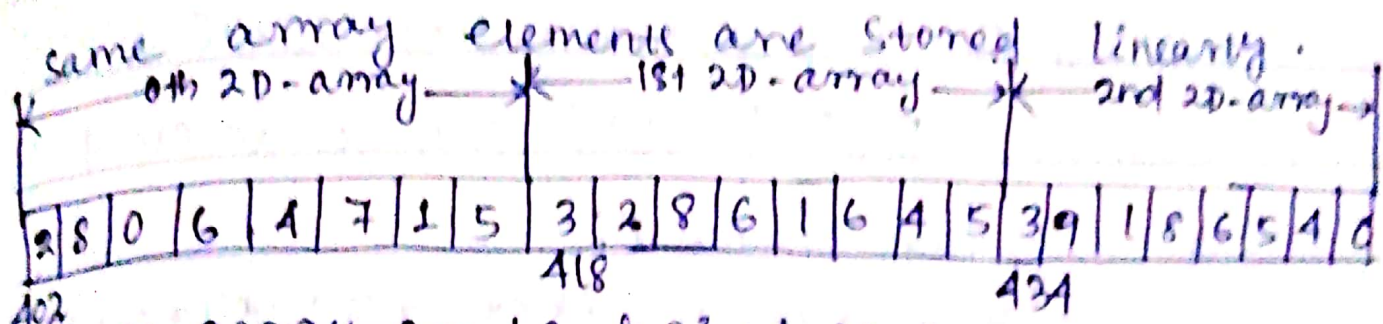 same array elements are stored linearly.
0th 2D-array 1st 2D-array 2nd 2D-array
2 8 0 6 4 7 1 5 3 2 8 6 1 6 4 5 3 9 1 8 6 5 4 0
402 418 434